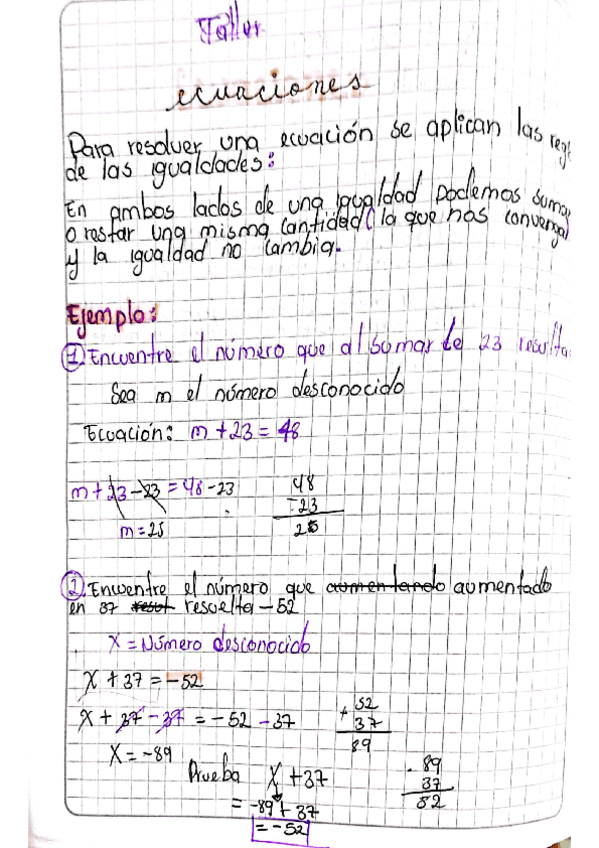 Taller
ecuaciones
Para resolver una ecuación se aplican las
de las igualdades:
En ambos lados de una igualdad podemos suma
o restar una misma cantidad (la que nos convenga)
y la igualdad no cambia.
Ejemplo:
1) Encuentre el número que al sumarle 23 resulta
Sea m el número desconocido
Ecuación: m + 23 = 48
m + 23 - 23 = 48 - 23
m = 25
48
- 23
25
2) Encuentre el número que aumentando aumentado
en 37 resul resuelta - 52
X = Número desconocido
X + 37 = - 52
X + 37 - 37 = - 52 - 37
X = - 89
52
+ 37
89
Prueba X + 37
= - 89 + 37
= - 52
- 89
37
52